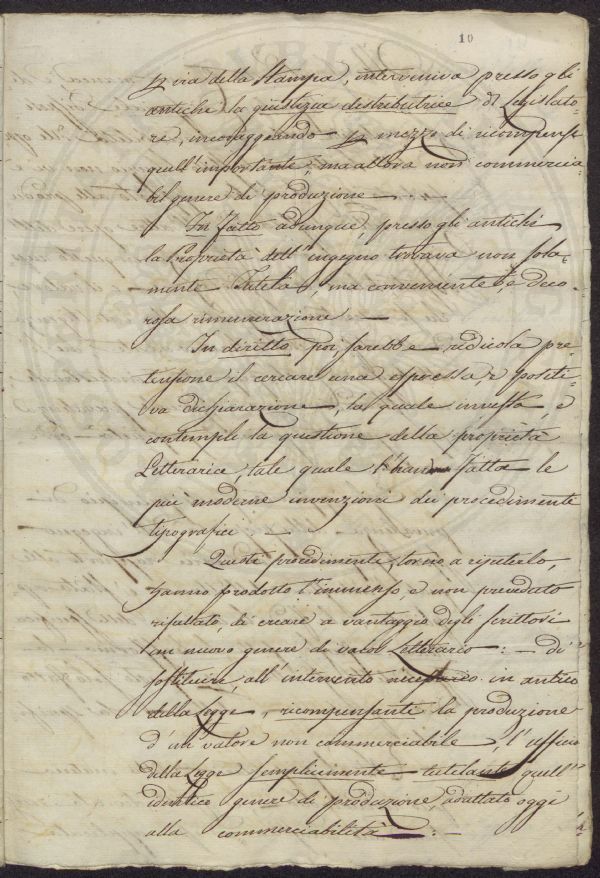 10
p via della Stampa, interveniva presso gli
antichi la giustizia distributrice di Legislato-
re, incoraggeando p mezzo di ricompense
quell'importante, ma allora non commercia-
bil genere di produzione —
In fatto adunque, presso gli antichi
la Proprietà dell'ingegno trovava non sola-
mente Tutela, ma conveniente, e deco-
rosa rimunerazione —
In diritto poi, sarebbe ridicola pre-
tensione il cercare una espressa, e positi-
va dichiarazione, la quale investa, e
contempli la questione della proprietà
Letteraria, tale quale l'hanno fatta le
più moderne invenzioni dei procedimenti
tipografici —
Questi procedimenti, torno a ripeterlo,
hanno prodotto l'immenso, e non preveduto
risultato, di creare a vantaggio degli scrittori
un nuovo genere di valor Letterario: — di
sostituire, all'intervento necessario in antico
della Legge, ricompensante la produzione
d'un valore non commerciabile, l'ufficio
della Legge semplicemente tutelante quell'
identico genere di produzione, adattato oggi
alla commerciabilità: —